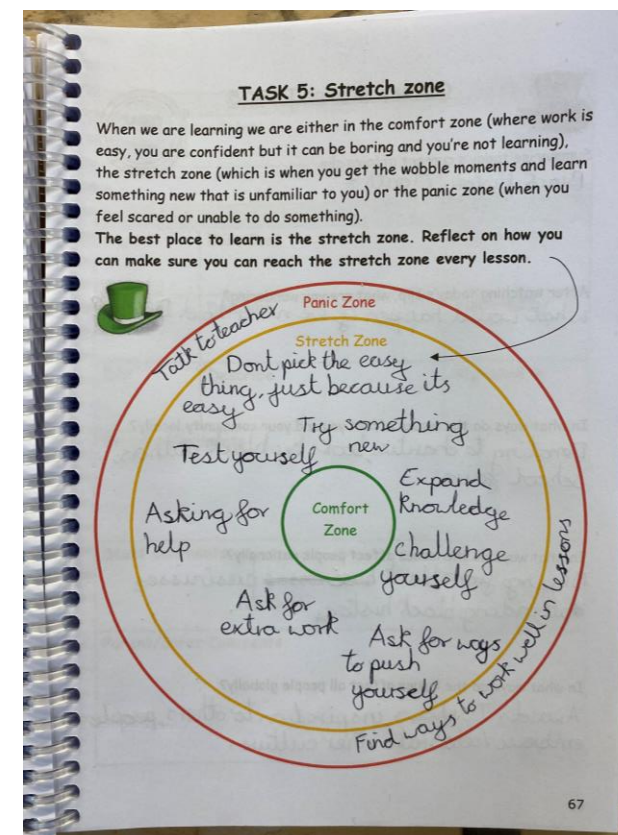 TASK 5: Stretch zone
When we are learning we are either in the comfort zone (where work is
easy, you are confident but it can be boring and you're not learning),
the stretch zone (which is when you get the wobble moments and learn
something new that is unfamiliar to you) or the panic zone (when you
feel scared or unable to do something).
The best place to learn is the stretch zone. Reflect on how you
can make sure you can reach the stretch zone every lesson.
Panic Zone
Talk to teacher
Stretch Zone
Dont pick the easy
thing, just because its
easy
Try something
new
Test yourself
Expand
Knowledge
Comfort
Zone
Asking for
help
challenge
yourself
Ask for
extra work
Ask for ways
to push
yourself
Find ways to work well in lessons
67